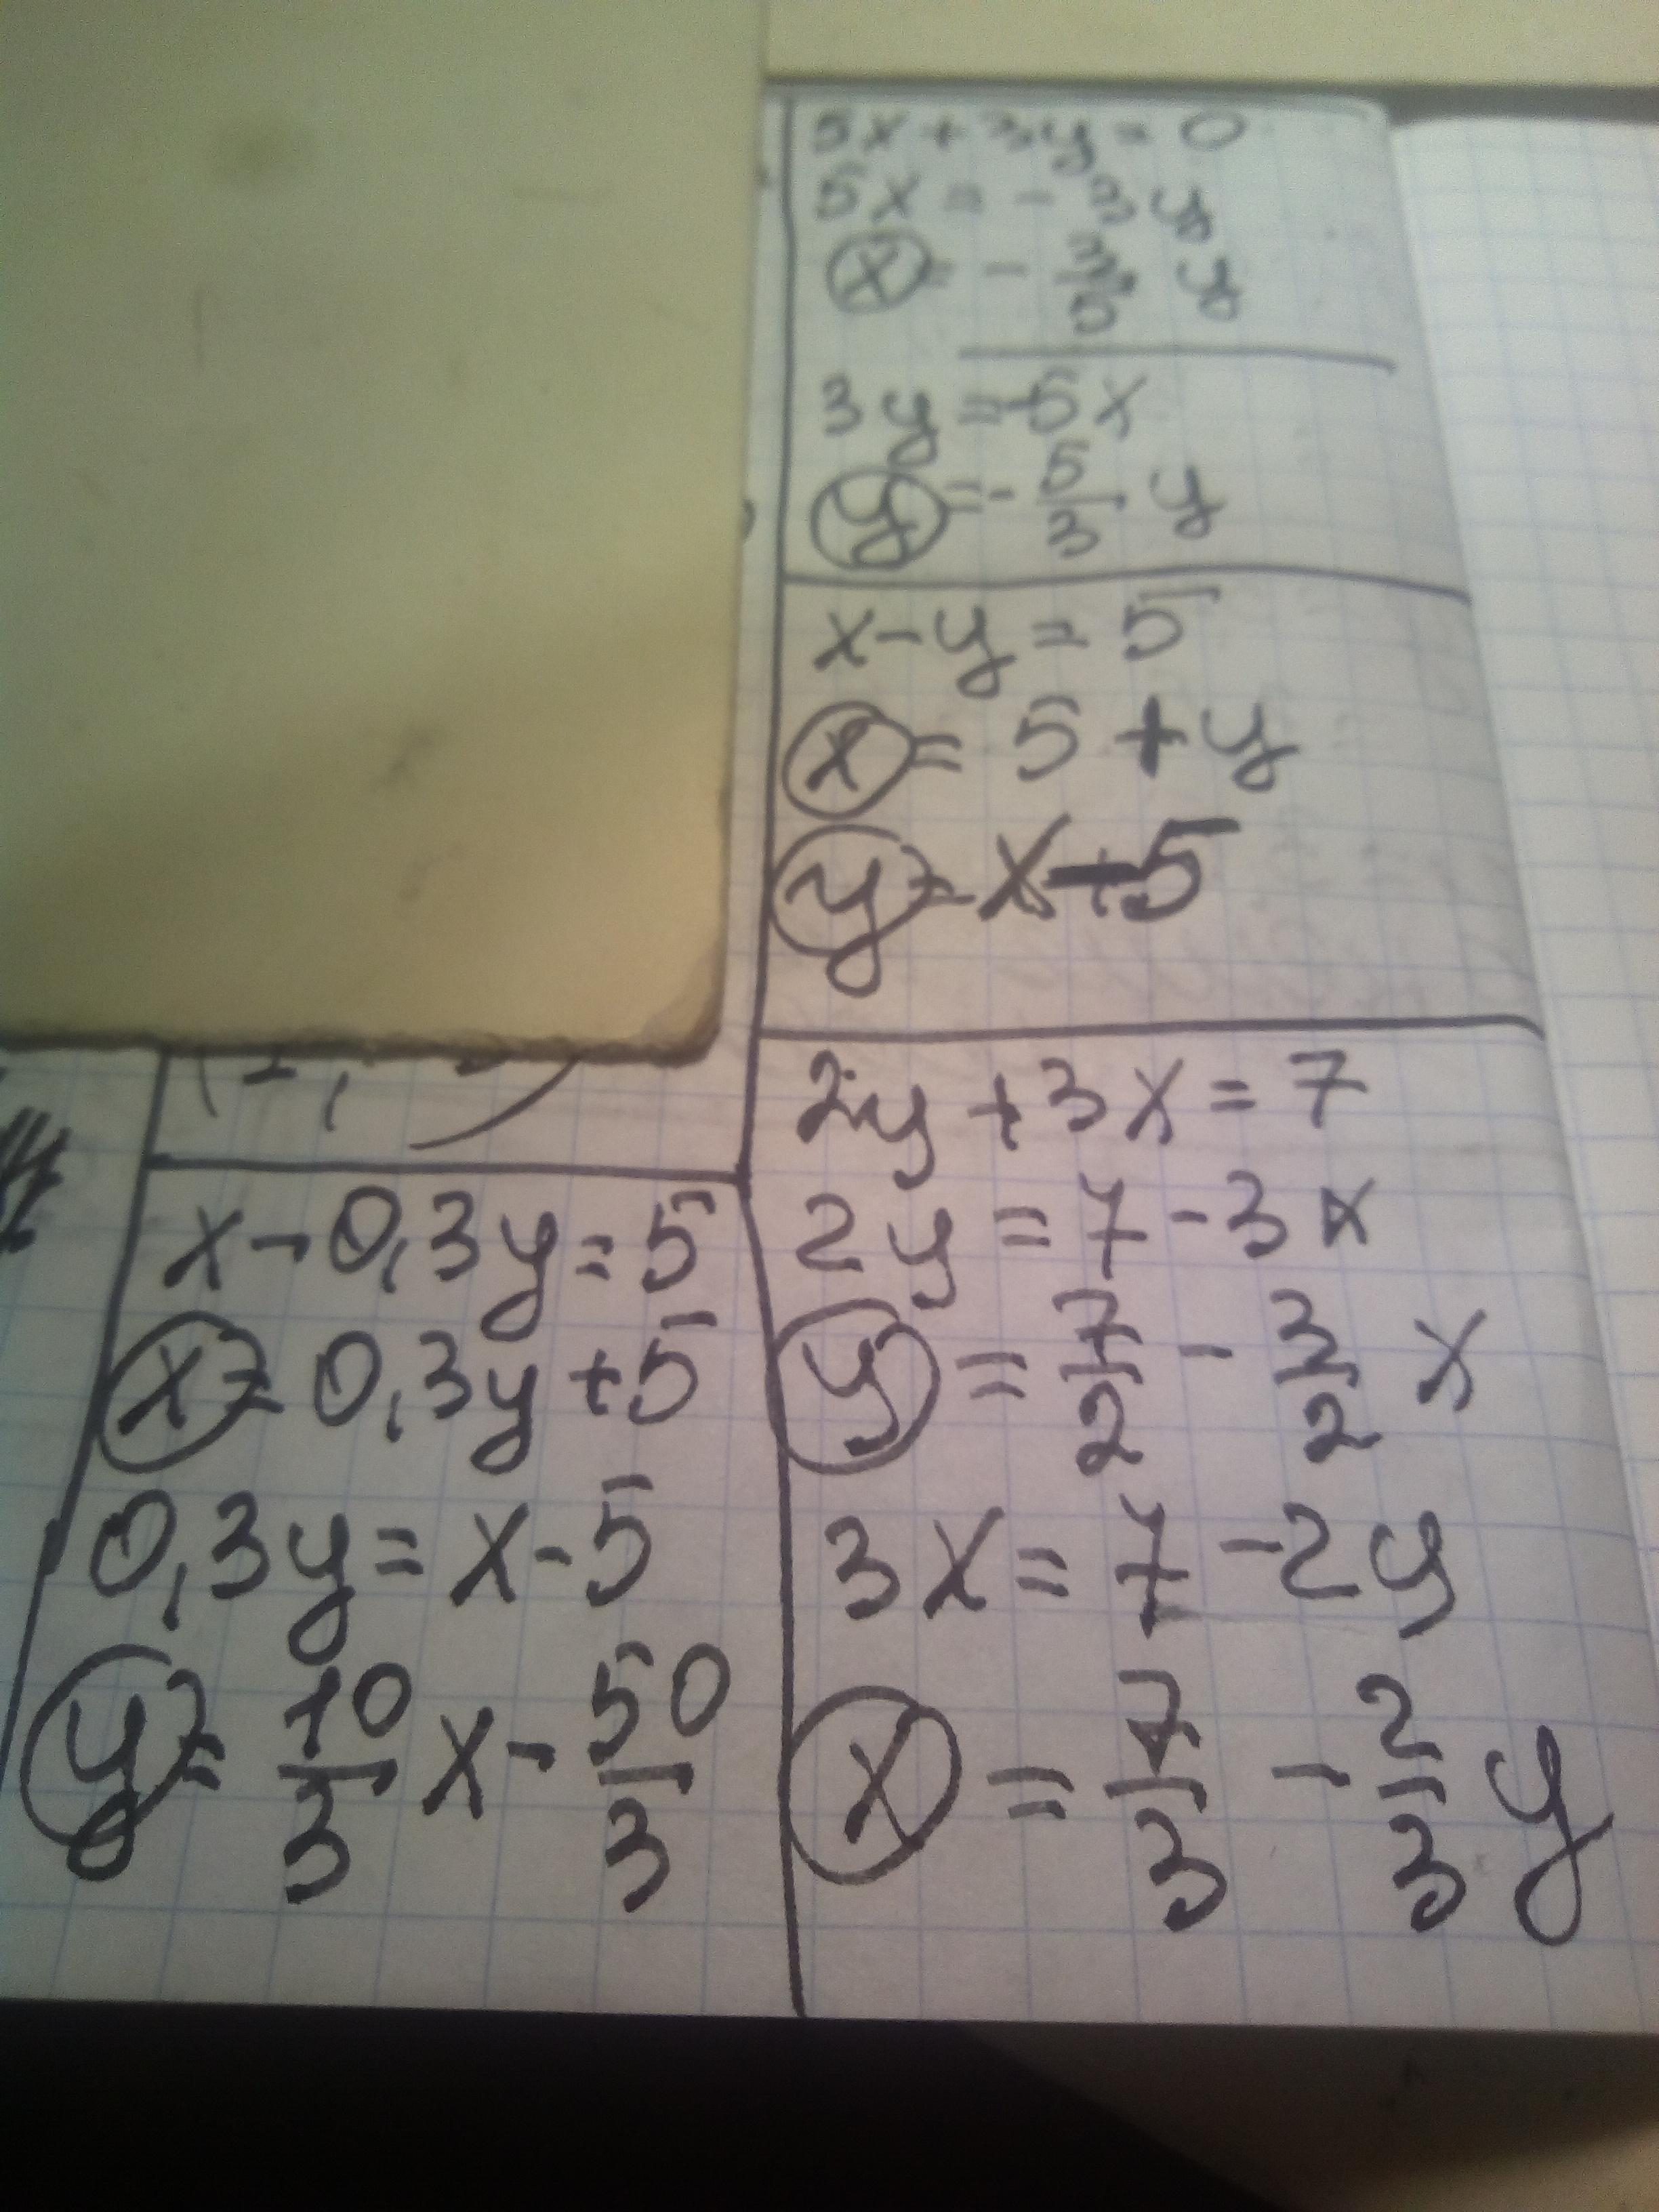 5x + 3y = 0
5x = - 3y
x = - 3/5 y
3y = -5x
y = - 5/3 y
x - y = 5
x = 5 + y
y = x - 5
2y + 3x = 7
2y = 7 - 3x
y = 7/2 - 3/2 x
3x = 7 - 2y
x = 7/3 - 2/3 y
x - 0,3y = 5
x = 0,3y + 5
0,3y = x - 5
y = 10/3 x - 50/3